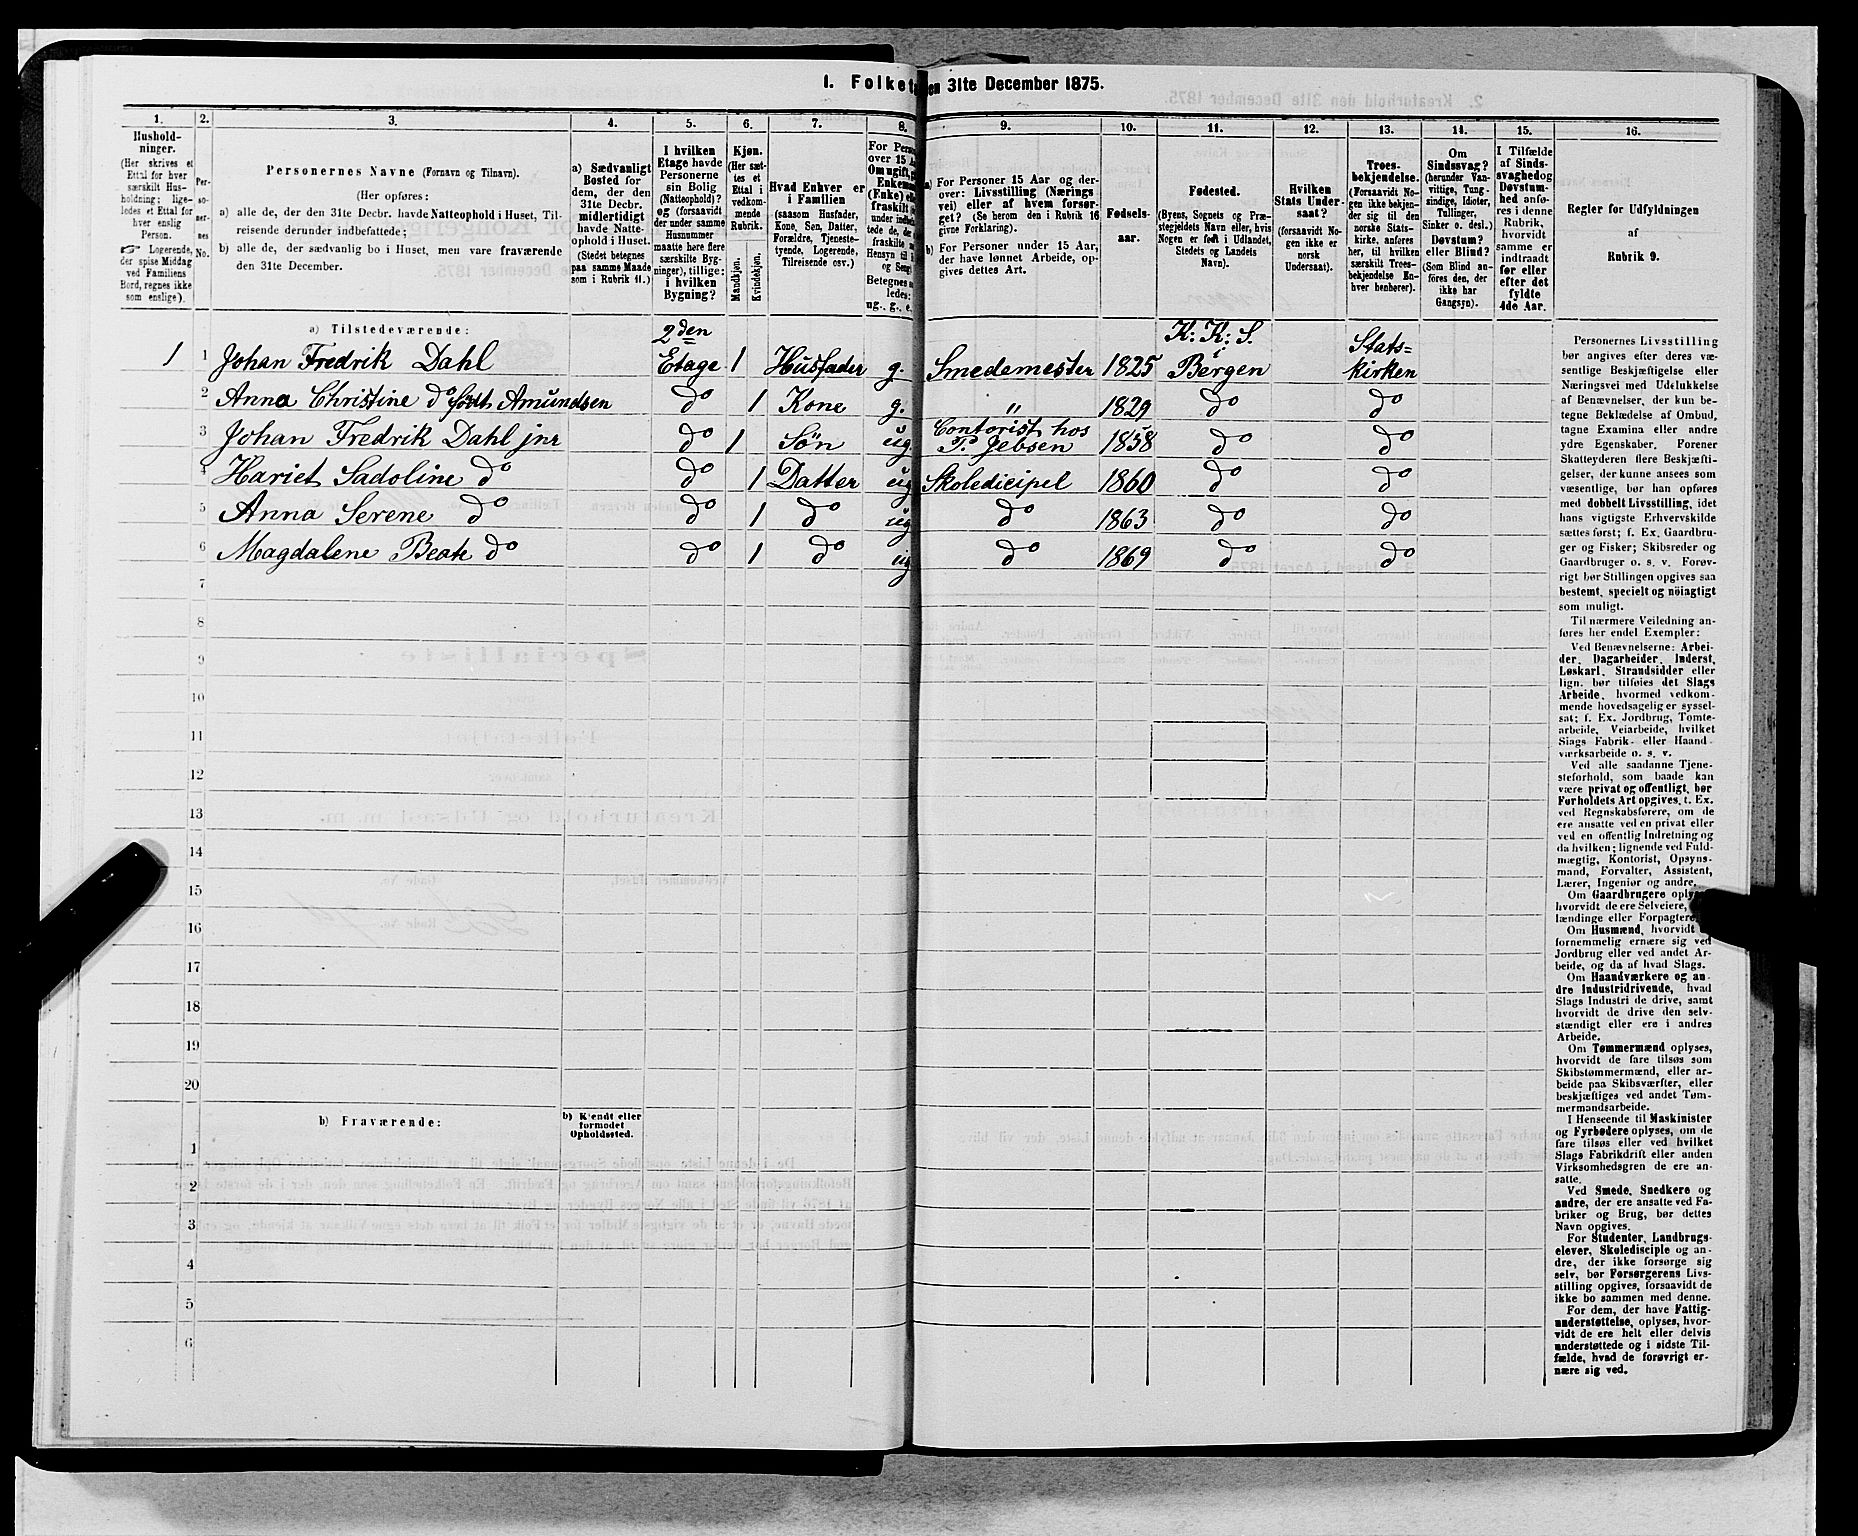 1. Folketal den 31te December 1875.
1.
Hushold-
ninger.
(Her skrives et
Ettal for hver
særskilt Hus-
holdning; lige-
ledes et Ettal for
hver enslig
Person.
Logerende,
der spise Middag
ved Familiens
Bord, regnes ikke
som enslige).
2.
Per-
so-
ner-
nes
No.
3.
Personernes Navne (Fornavn og Tilnavn).
(Her opføres:
a) alle de, der den 31te Decbr. havde Natteophold i Huset, Til-
reisende derunder indbefattede;
b) alle de, der sædvanlig bo i Huset, men vare fraværende
den 31te December.
4.
a) Sædvanligt
Bosted for
dem, der den
31te Decbr.
midlertidigt
havde Natte-
ophold i Huset.
(Stedet betegnes
paa samme Maade
som i Rubrik 11.)
5.
I hvilken
Etage havde
Personerne
sin Bolig
(Natteophold)?
og (forsaavidt
der under samme
Husnummer
maatte høre flere
særskilte Byg-
ninger), tillige:
i hvilken
Bygning?
6.
Kjøn.
(Her sæt-
tes et
Ettal i
vedkom-
mende
Rubrik.
Mandkjøn.
Kvindekjøn.
7.
Hvad Enhver er
i Familien
(saasom Husfader,
Kone, Søn, Datter,
Forældre, Tjeneste-
tyende, Logerende,
Tilreisende osv.)
8.
For Pers
over 15 A
Om ugift,
Enkem
(Enke)
fraskilt
under
tede de,
fraskilte
Hensyn til
og Seng
Betegnes
ledes:
ug., g., e.
9.
a) For Personer 15 Aar og der-
over: Livsstilling (Nærings
vei) eller af hvem forsør-
get? (Se herom den i Rubrik 16
givne Forklaring).
b) For Personer under 15 Aar,
der have lønnet Arbeide, op-
gives dettes Art.
10.
Fødsels-
aar.
11.
Fødested.
(Byens, Sognets og Præ-
stegjeldets Navn eller, hvis
Nogen er født i Udlandet,
Stedets og Landets
Navn).
12.
Hvilken
Stats Under-
saat?
(forsaavidt No-
gen ikke er
norsk
Undersaat).
13.
Troes-
bekjendelse.
(Forsaavidt No-
gen ikke bekjen-
der sig til den
norske Stats-
kirke, anføres
her, til hvilken
særskilt Troes-
bekjendelse En-
hver henhører).
14.
Om
Sindssvag?
(herunder Van-
vittige, Tung-
sindige, Idioter,
Tullinger,
Sinker o. desl.)
Døvstum?
eller Blind?
(Som Blind an-
føres den, der
ikke har
Gangsyn).
15.
I Tilfælde
af Sinds-
svaghed og
Døvstum-
hed anfø-
res i denne
Rubrik,
hvorvidt
samme er
indtraadt
før eller
efter det
fyldte
4de Aar.
16.
Regler for Udfyldningen
af
Rubrik 9.
a) Tilstedeværende:
2den K: K: S.
1 1 Johan Fredrik Dahl Etage 1 Husfader g. Smedemester 1825 i Bergen Stats=kirken
2 Anna Christine do født Amundsen do 1 Kone g. " 1829 do do
3 Johan Fredrik Dahl jnr do 1 Søn ug Contorist hos P. Jebsen 1858 do do
4 Hariet Sadoline do do 1 Datter ug Skoledicipel 1860 do do
5 Anna Serene do do 1 do ug do 1863 do do
6 Magdalene Beate do do 1 do ug do 1869 do do
7
8
9
10
11
12
13
14
15
16
17
18
19
20
b) Fraværende:
b) Kjendt eller
formodet
Opholdssted.
1
2
3
4
5
6
Personernes Livsstilling
bør angives efter deres væ-
sentlige Beskjæftigelse eller
Næringsvei med Udelukkelse
af Benævnelser, der kun be-
tegne Beklædelse af Ombud,
tagne Examina eller andre
ydre Egenskaber. Forener
Skatteyderen flere Beskjæfti-
gelser, der kunne ansees som
væsentlige, bør han opføres
med dobbelt Livsstilling, idet
hans vigtigste Erhvervskilde
sættes først; f. Ex. Gaardbru-
ger og Fisker; Skibsreder og
Gaardbruger o. s. v. Forøv-
rigt bør Stillingen opgives saa
bestemt, specielt og nöiagtigt
som muligt.
Til nærmere Veiledning an-
føres her endel Exempler:
Ved Benævnelserne: Arbei-
der, Dagarbeider, Inderst,
Løskarl, Strandsidder eller
lign. bør tilføies det Slags
Arbeide, hvormed vedkom-
mende hovedsagelig er syssel-
sat; f. Ex. Jordbrug, Tomte-
arbeide, Veiarbeide, hvilket
Slags Fabrik- eller Haand-
værksarbeide o. s. v.
Ved alle saadanne Tjene-
steforhold, som baade kan
være privat og offentligt, bør
Forholdets Art opgives, t. Ex.
ved Regnskabsførere, om de
ere ansatte ved en privat eller
ved en offentlig Indretning og
da hvilken; lignende ved Fuld-
mægtig, Kontorist, Opsyns-
mand, Forvalter, Assistent,
Lærer, Ingeniør og andre.
Om Gaardbrugere oplyses,
hvorvidt de ere Selveiere,
lændinge eller Forpagtere.
Om Husmænd, hvorvidt
fornemmelig ernære sig ved
Jordbrug eller ved andet Ar-
beide, og da af hvad Slags.
Om Haandværkere og an-
dre Industridrivende, hvad
Slags Industri de drive, samt
hvorvidt de drive den selv-
stændigt eller ere i andres
Arbeide.
Om Tømmermænd oplyses,
hvorvidt de fare tilsøs som
Skibstømmermænd, eller ar-
beide paa Skibsværfter, eller
beskjæftiges ved andet Tøm-
mermandsarbeide.
I Henseende til Maskinister
og Fyrbødere oplyses, om de
fare tilsøs eller ved hvilket
Slags Fabrikdrift eller anden
Virksomhedsgren de ere an-
satte.
Ved Smede, Snedkere og
andre, der ere ansatte ved Fa-
briker og Brug, bør dettes
Navn opgives.
For Studenter, Landbrugs-
elever, Skoledisciple og an-
dre, der ikke forsørge sig
selv, bør Forsørgerens Livs-
stilling opgives, forsaavidt de
ikke bo sammen med denne.
For dem, der have Fattig-
understøttelse, oplyses, hvor-
vidt de ere helt eller delvis
understøttede og i sidste Til-
fælde, hvad de forøvrigt er-
nære sig ved.